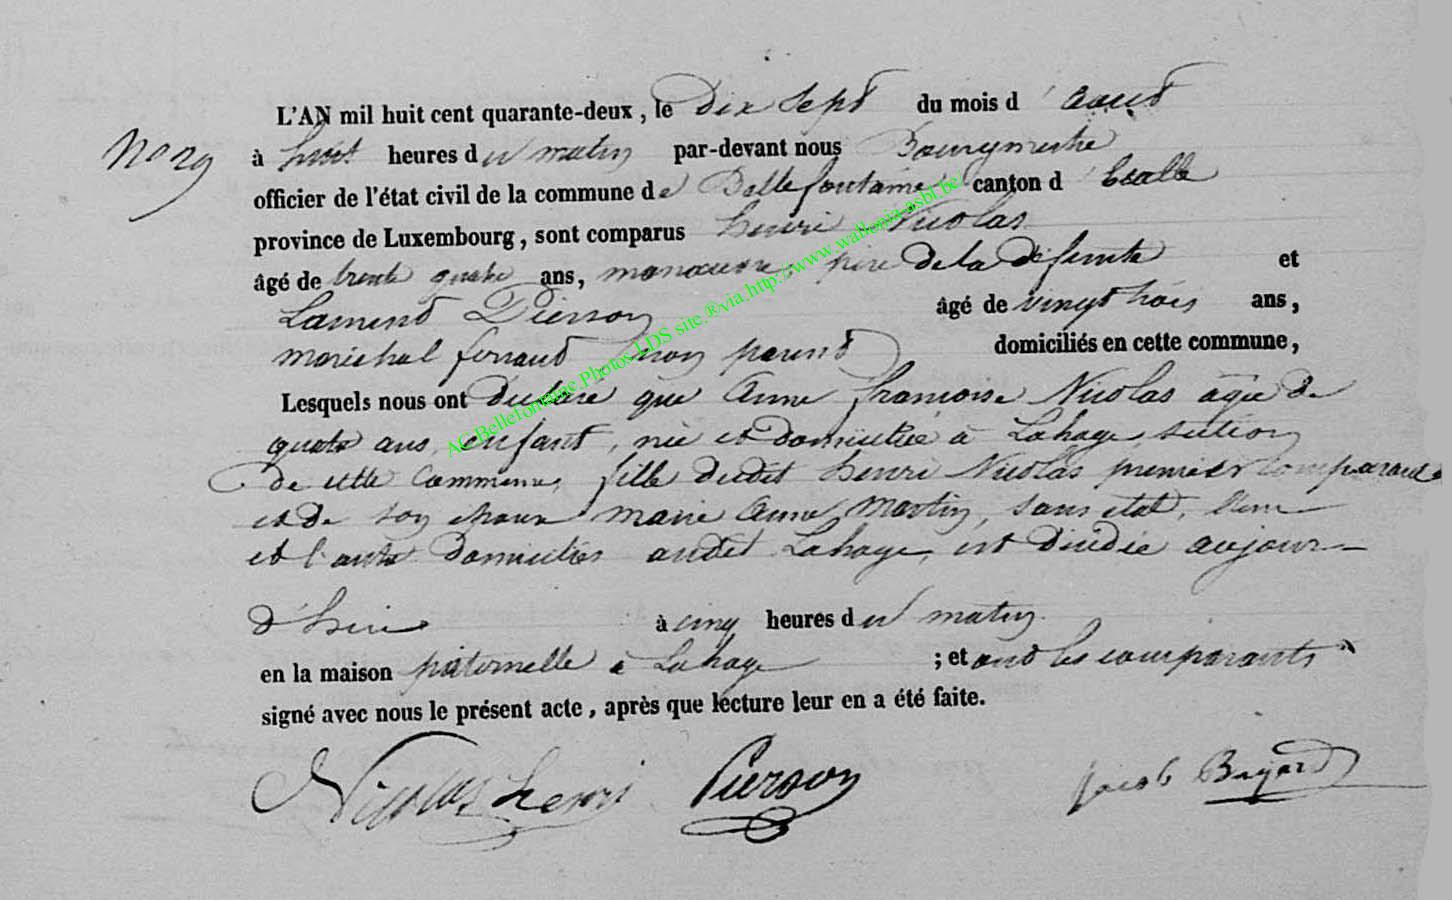 L'AN mil huit cent quarante-deux, le dix sept du mois d'aout
No 29
à huit heures du matin par-devant nous Bourgmestre
officier de l'état civil de la commune de Bellefontaine canton d'
province de Luxembourg, sont comparus henri Nicolas
âgé de trente quatre ans, manoeuvre, père de la défunte et
Lament Pierson âgé de vingt trois ans,
maréchal ferrant, non parent domiciliés en cette commune,
Lesquels nous ont declaré que Anne francoise Nicolas agée de
quatre ans, enfant, née et domiciliée à Lahage, section
de cette Commune, fille dudit henri Nicolas premier comparant
et de son epouse marie Anne Martin, sans etat, l'une
et l'autre domiciliés audit Lahage, est décédée aujour-
d'hui à cinq heures du matin
en la maison paternelle à Lahage ; et ont les comparants
signé avec nous le présent acte, après que lecture leur en a été faite.
Nicolas henri Pierson Jacob Bayard
AC Bellefontaine.Photos LDS site.®via http://www.wallonia-asbl.be/